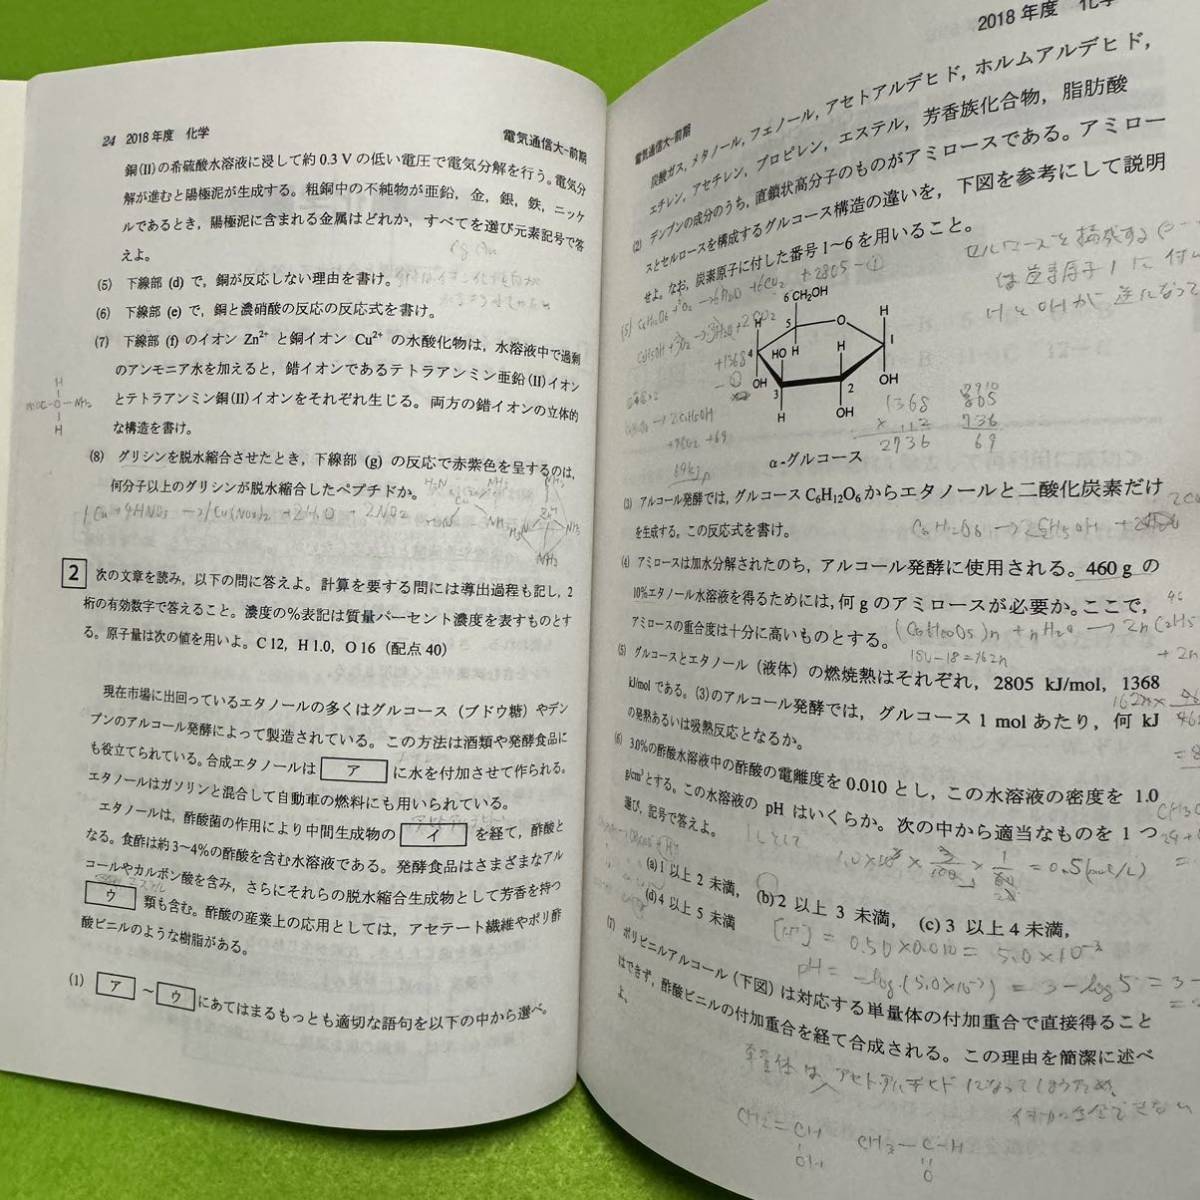 24 2018年度 化学
電気通信大-前期
銅(II)の希硫酸水溶液に浸して約0.3 Vの低い電圧で電気分解を行う。電気分
解が進むと陽極泥が生成する。粗銅中の不純物が亜鉛，金，銀，鉄，ニッケ
ルであるとき，陽極泥に含まれる金属はどれか，すべてを選び元素記号で答
えよ。
(5) 下線部 (d) で，銅が反応しない理由を書け。
(6) 下線部 (e) で，銅と濃硝酸の反応の反応式を書け。
(7) 下線部 (f) のイオン Zn²⁺ と銅イオン Cu²⁺ の水酸化物は，水溶液中で過剰
のアンモニア水を加えると，錯イオンであるテトラアンミン亜鉛(II)イオン
とテトラアンミン銅(II)イオンをそれぞれ生じる。両方の錯イオンの立体的
な構造を書け。
(8) グリシンを脱水縮合させたとき，下線部 (g) の反応で赤紫色を呈するのは，
何分子以上のグリシンが脱水縮合したペプチドか。
2 次の文章を読み，以下の問に答えよ。計算を要する問には導出過程も記し，2
桁の有効数字で答えること。濃度の%表記は質量パーセント濃度を表すものとす
る。原子量は次の値を用いよ。C 12，H 1.0，O 16（配点 40）
現在市場に出回っているエタノールの多くはグルコース（ブドウ糖）やデン
プンのアルコール発酵によって製造されている。この方法は酒類や発酵食品に
も役立てられている。合成エタノールは ア に水を付加させて作られる。
エタノールはガソリンと混合して自動車の燃料にも用いられている。
エタノールは，酢酸菌の作用により中間生成物の イ を経て，酢酸と
なる。食酢は約3~4%の酢酸を含む水溶液である。発酵食品はさまざまなアル
コールやカルボン酸を含み，さらにそれらの脱水縮合生成物として芳香を持つ
ウ 類も含む。酢酸の産業上の応用としては，アセテート繊維やポリ酢
酸ビニルのような樹脂がある。
(1) ア ～ ウ にあてはまるもっとも適切な語句を以下の中から選べ。
2018年度 化学
電気通信大-前期
炭酸ガス，メタノール，フェノール，アセトアルデヒド，ホルムアルデヒド，
エチレン，アセチレン，プロピレン，エステル，芳香族化合物，脂肪酸
(2) デンプンの成分のうち，直鎖状高分子のものがアミロースである。アミロー
スとセルロースを構成するグルコース構造の違いを，下図を参考にして説明
せよ。なお，炭素原子に付した番号1~6を用いること。
6 CH₂OH
5
O
H
H
4
H
1
HO H
H
OH
3
2
OH
H
OH
α-グルコース
1368
× 2
2736
2805
2736
69
(3) アルコール発酵では，グルコース C₆H₁₂O₆からエタノールと二酸化炭素だけ
を生成する。この反応式を書け。
(4) アミロースは加水分解されたのち，アルコール発酵に使用される。460 g の
10%エタノール水溶液を得るためには，何 g のアミロースが必要か。ここで，
アミロースの重合度は十分に高いものとする。
(5) グルコースとエタノール（液体）の燃焼熱はそれぞれ，2805 kJ/mol，1368
kJ/molである。(3)のアルコール発酵では，グルコース 1 mol あたり，何 kJ
の発熱あるいは吸熱反応となるか。
(6) 3.0%の酢酸水溶液中の酢酸の電離度を 0.010 とし，この水溶液の密度を 1.0
g/cm³とする。この水溶液の pH はいくらか。次の中から適当なものを 1 つ
選び，記号で答えよ。
1Lとして
(a) 1 以上 2 未満， (b) 2 以上 3 未満， (c) 3 以上 4 未満，
(d) 4 以上 5 未満
= 0.50×0.010 = 5.0×10⁻³
pH = -log(5.0×10⁻³) = 3-log5
(7) ポリビニルアルコール（下図）は対応する単量体の付加重合で直接得ること
はできず，酢酸ビニルの付加重合を経て合成される。この理由を簡潔に述べ
よ。
単量体はアセトアルデヒドになってしまうため
CH₂=CH
OH
CH₃-C-H
O